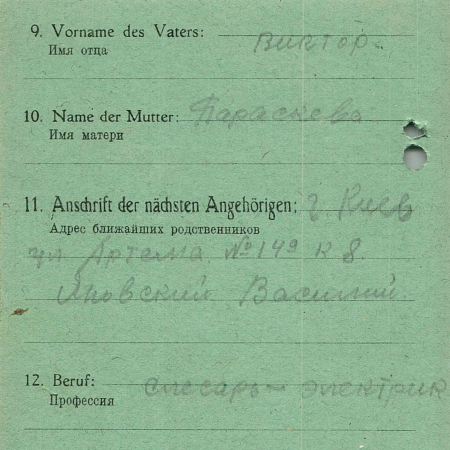 9. Vorname des Vaters: Виктор.
Имя отца
10. Name der Mutter: Параскева
Имя матери
11. Anschrift der nächsten Angehörigen: г Киев
Адрес ближайших родственников
ул Артема №149 к 8.
Яновский Василий.
12. Beruf: слесарь – электрик
Профессия